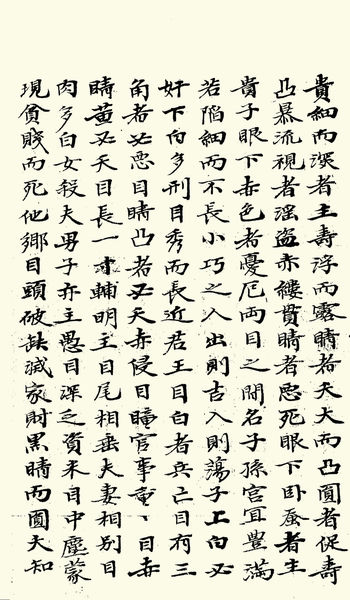 貴細而深者主壽浮而露睛者夭大而凸圓者促壽
凸暴流視者淫盜赤縷貫睛者惡死眼下卧蚕者生
貴子眼下赤色者憂厄両目之間名子孫宮冝豊滿
若陷細而不長小巧之入出則吉入則蕩子上白必
奸下白多刑目秀而長近君王目白者兵亡目有三
角者必惡目睛凸者必夭赤侵目瞳官事重〻目赤
睛黄必夭目長一寸輔明主目尾相垂夫妻相別目
肉多白女殺夫男子亦主愚目深乏資米目中塵蒙
現貧賤而死他鄉目頭破缺減家財黒睛而圓大知